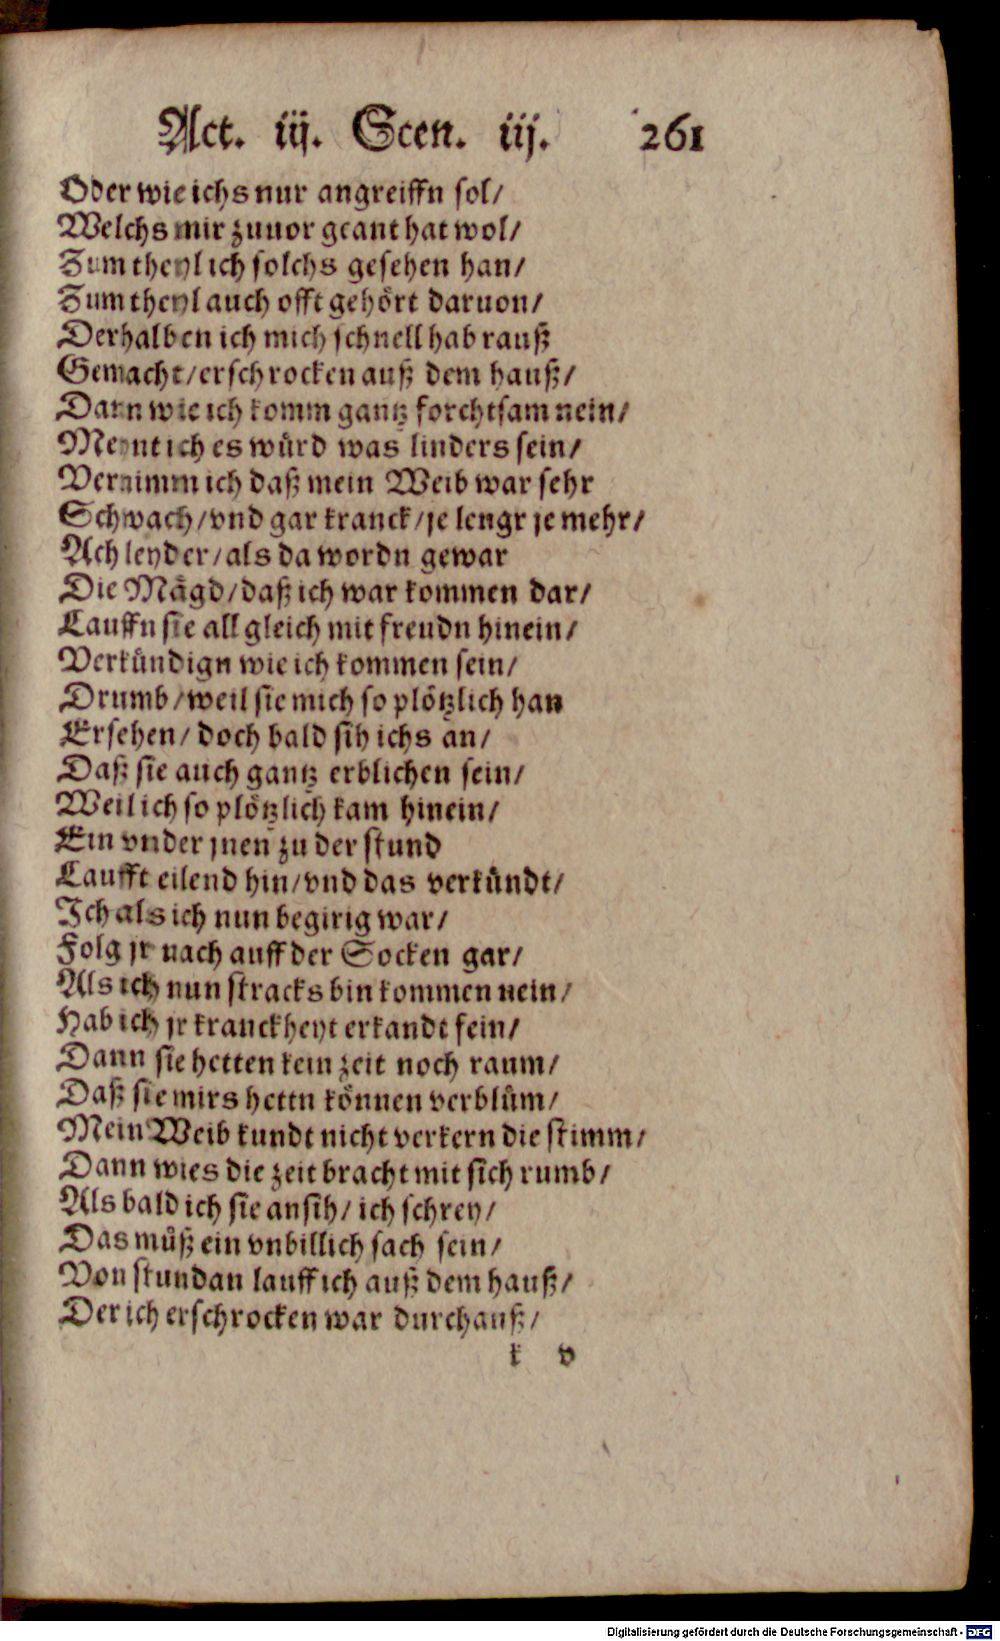 Act. iij. Scen. iij. 261
Oder wie ichs nur angreiffn sol/
Welchs mir zuuor geant hat wol/
Zum theyl ich solchs gesehen han/
Zum theyl auch offt gehört daruon/
Derhalben ich mich schnell hab rauß
Gemacht/erschrocken auß dem hauß/
Dann wie ich komm gantz forchtsam nein/
Meynt ich es würd was linders sein/
Vernimm ich daß mein Weib war sehr
Schwach/vnd gar kranck/je lengr je mehr/
Ach leyder/als da wordn gewar
Die Mägd/daß ich war kommen dar/
Lauffn sie all gleich mit freudn hinein/
Verkündign wie ich kommen sein/
Drumb/weil sie mich so plötzlich han
Ersehen/ doch bald sih ichs an/
Daß sie auch gantz erblichen sein/
Weil ich so plötzlich kam hinein/
Ein vnder jnen zu der stund
Laufft eilend hin/vnd das verkündt/
Ich als ich nun begirig war/
Folg jr nach auff der Socken gar/
Als ich nun stracks bin kommen nein/
Hab ich jr kranckheyt erkandt fein/
Dann sie hetten kein zeit noch raum/
Daß sie mirs hettn können verblüm/
Mein Weib kundt nicht verkern die stimm/
Dann wies die zeit bracht mit sich rumb/
Als bald ich sie ansih/ ich schrey/
Das müß ein vnbillich sach sein/
Von stundan lauff ich auß dem hauß/
Der ich erschrocken war durchauß/
k v
Digitalisierung gefördert durch die Deutsche Forschungsgemeinschaft - DFG